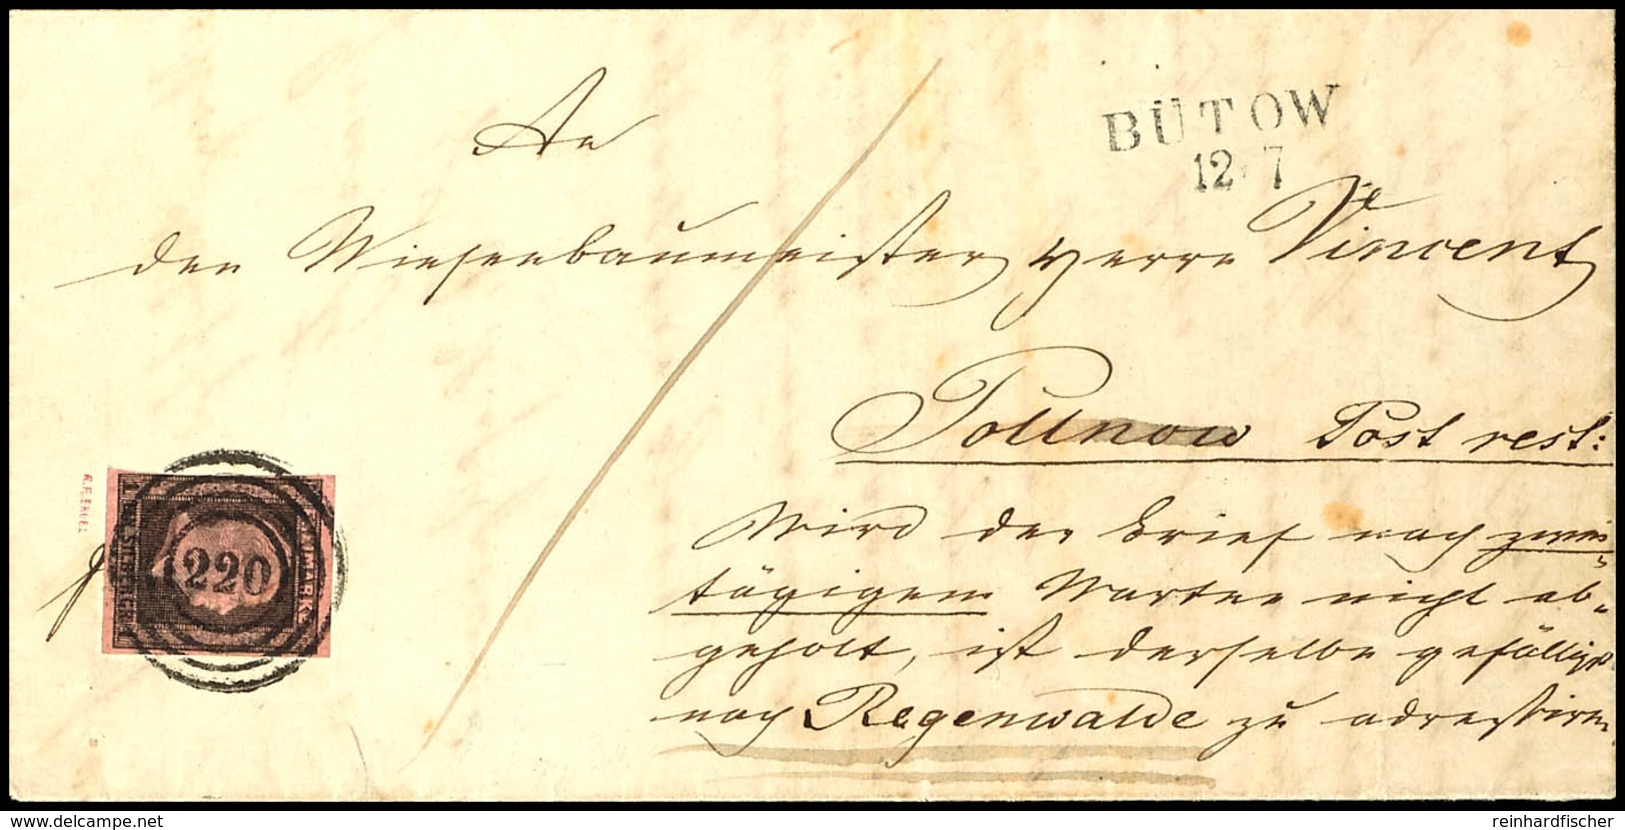 An
BÜTOW
12 7
den Wiesenbaumeister Herrn Vincent
Pollnow Post rest:
Wird der Brief nach zwei-
tägigem Warten nicht ab-
geholt, ist derselbe gefälligst
nach Regenwalde zu adressiren
220
delcampe.net
reinhardfischer